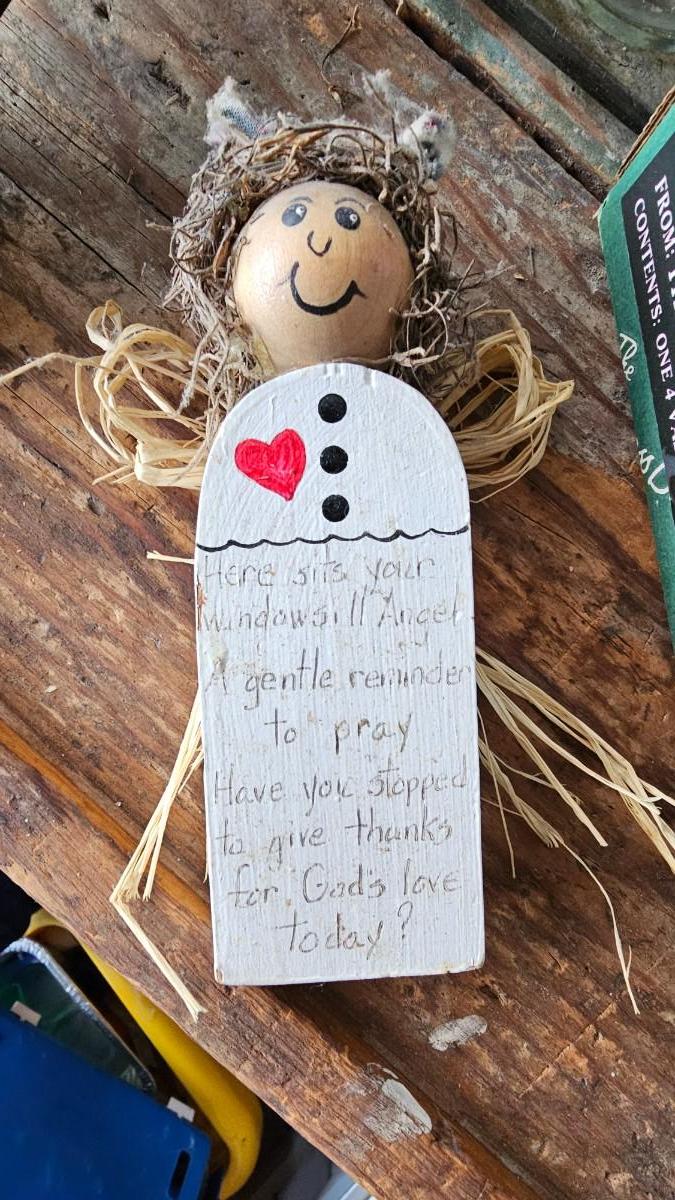 Here sits your
windowsill Angel.
A gentle reminder
to pray
Have you stopped
to give thanks
for God's love
today?
FROM:
CONTENTS: ONE 4
The